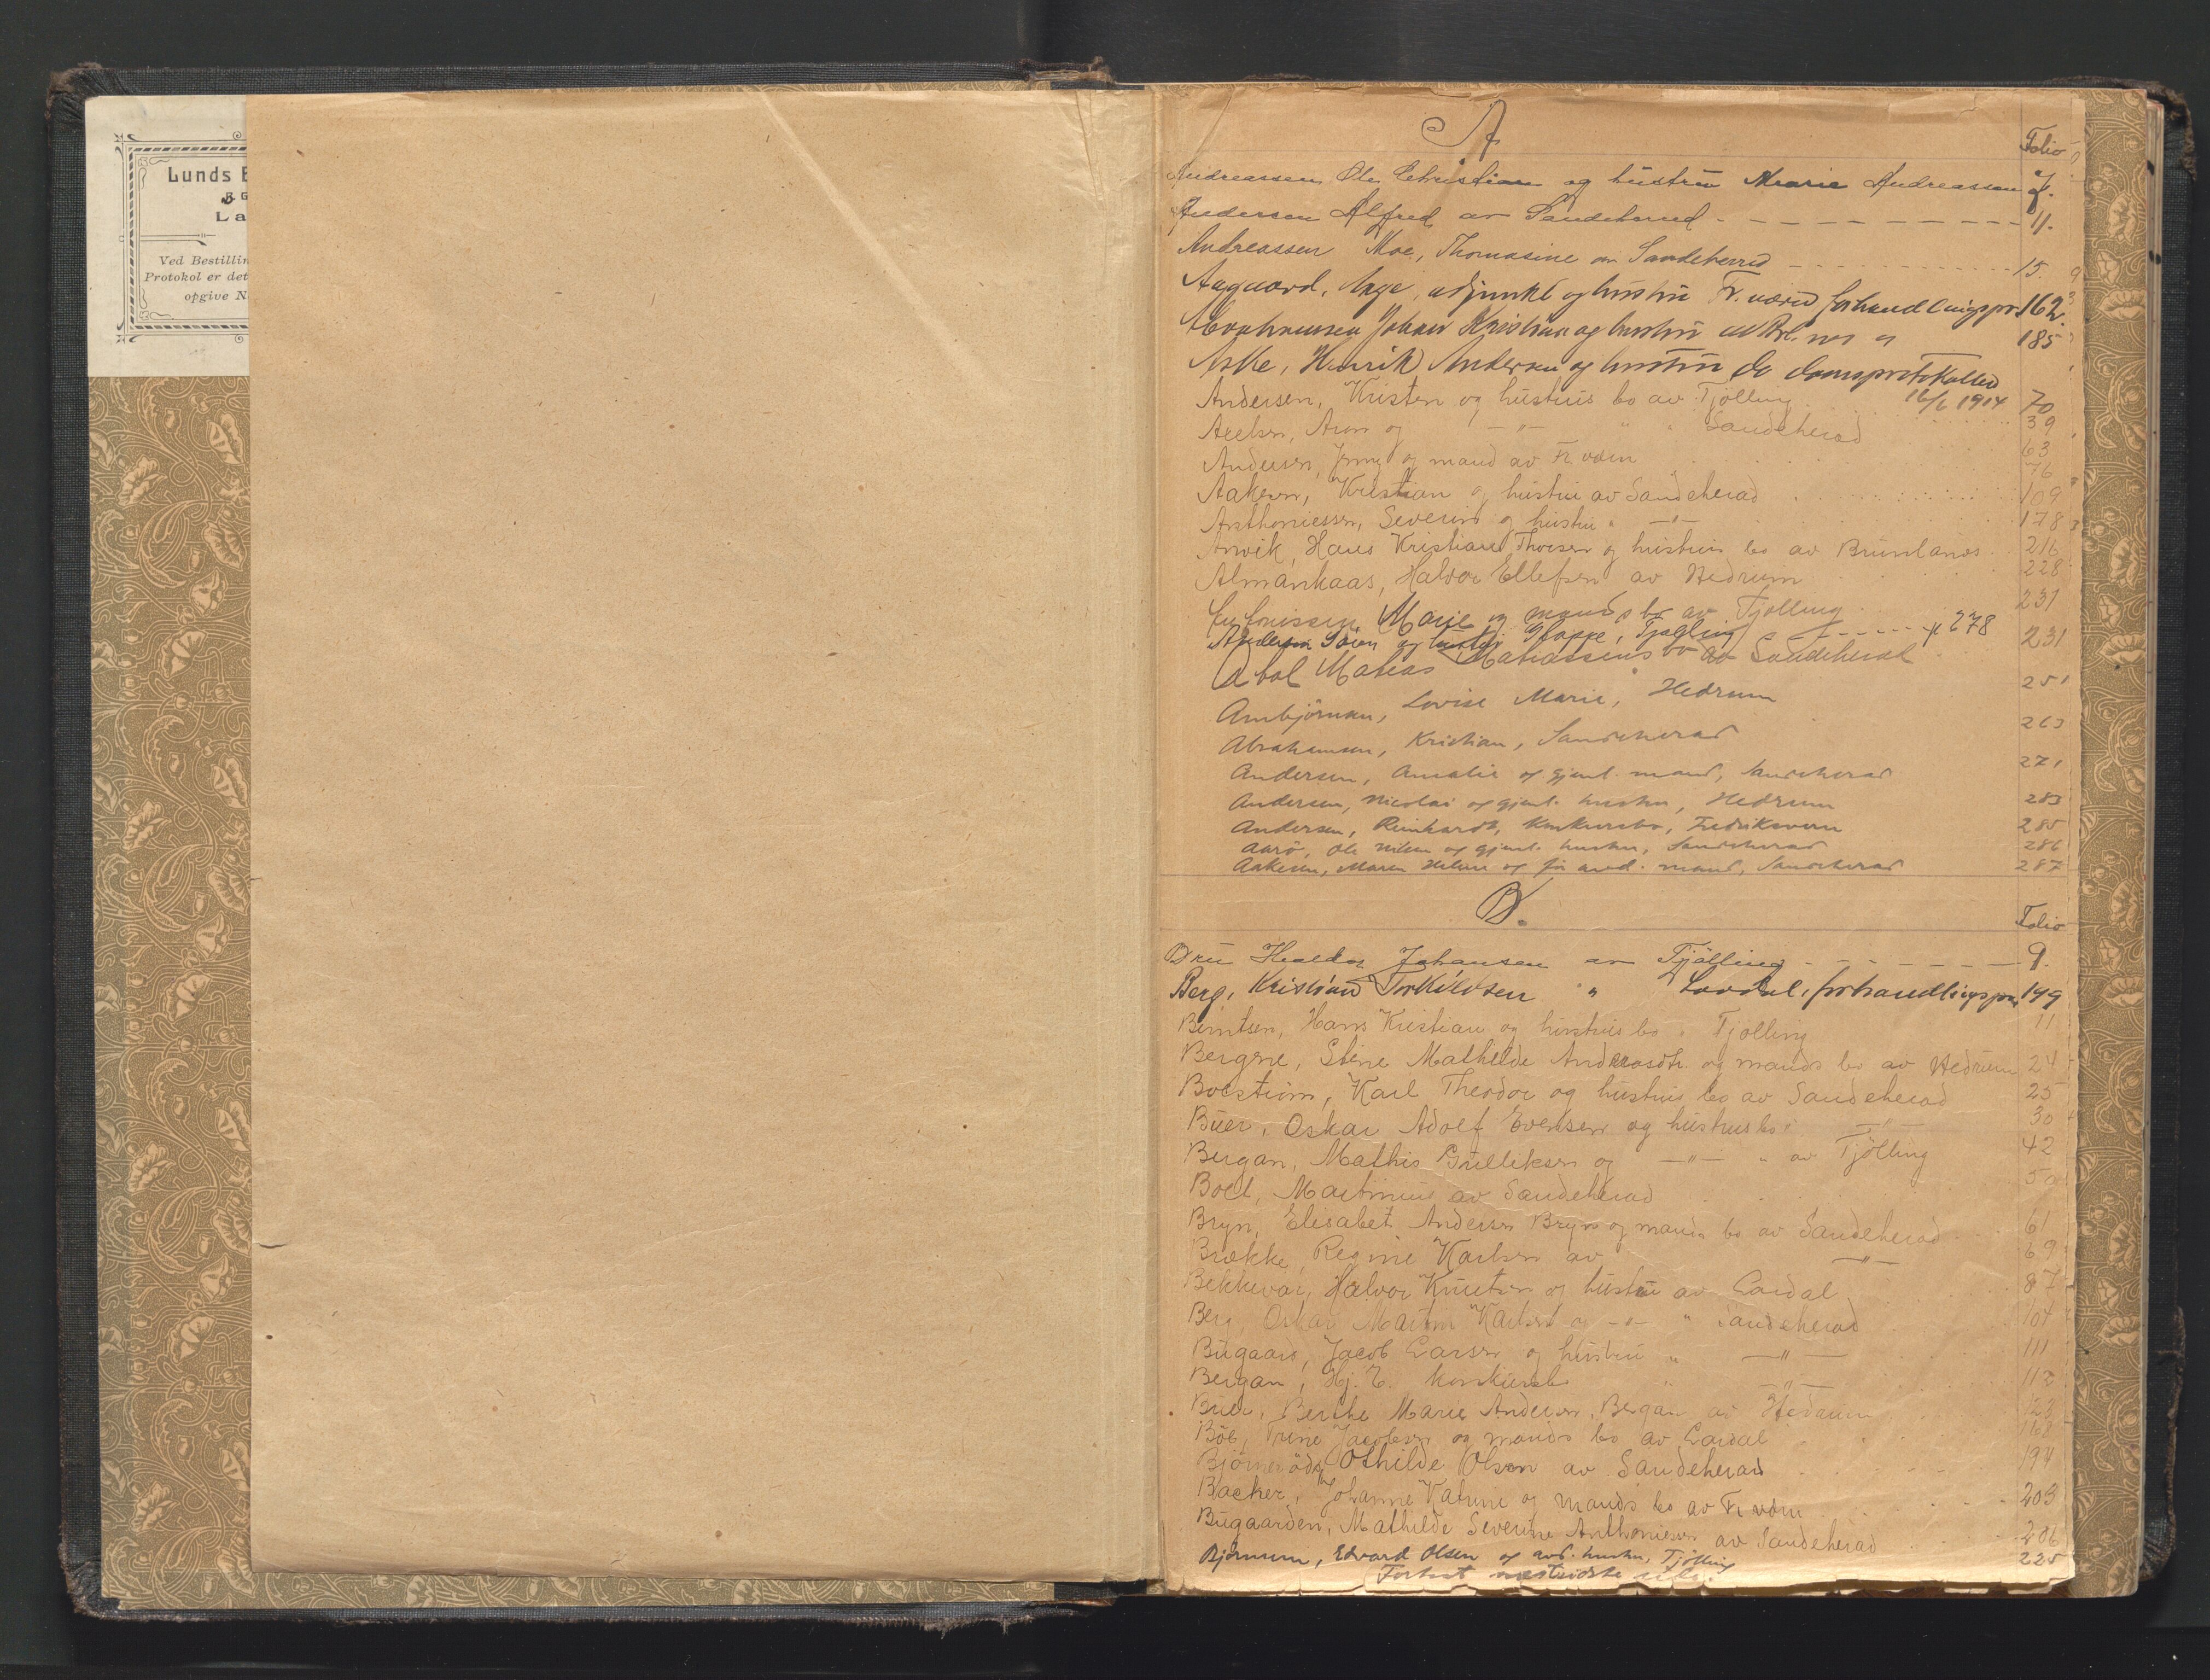 Lunds E
La
Ved Bestillin
Protokol er det
opgive N
A
Folio
Andreassen Ole Christian og hustru Marie Andreassen 7.
Andersen Alfred av Sandeherred 11.
Andreassen Moe, Thomasine av Sandeherred 15.
Aagaard, Aage, adjunkt og hustru Fr.værn forhandlingspr. 162.
Abrahamsen Johan Kristian og hustru 185
Aske, Henrik Andersen og hustru do domsprotokollen
16/6 1914
Andersen, Kristen og hustrus bo av Tjølling 70
Axelsen, Aron og —"— " " Sandeherad 39
Andersen, Jenny og mand av Fr.værn 63
76
Aakesen, Kristian og hustru av Sandeherad 109
Anthoniessen, Severin og hustru " —"— 178
Anvik, Hans Kristian Thorsen og hustrus bo av Brunlanes 216
Almankaas, Halvor Ellefsen av Hedrum 228
Marie og mands bo av Tjølling 231
Andersen Sören og hustru, Tjølling 278
231
Abol Matias Matiassens bo av Sandeherad
251
Ambjörnsen, Lovise Marie, Hedrum
263
Abrahamsen, Kristian, Sandeherad
271
Andersen, Amalie og gjenl. mand, Sandeherad
Andersen, Nicolai og gjenl. hustru, Hedrum 283
Andersen, Reinhardt, konkursbo, Fredriksvern 285
Aarö, Ole Nilsen og gjenl. hustru, Sandeherad 286
Aakesen, Maren Heline og før avd. mand, Sandeherad 287
B.
Folio
Bru Halvor Johansen av Tjölling 9.
Berg, Kristian Torkildsen " Lardal, forhandlingspr. 149
Berntsen, Hans Kristian og hustrus bo " Tjölling 11
Bergene, Stine Mathilde Andreasdtr. og mands bo av Hedrum 24
Boström, Karl Theodor og hustrus bo av Sandeherad 25
Buer, Oskar Adolf Evensen og hustrus bo —"— 30
Bergan, Mathis Gulliksen og —"— " av Tjölling 42
Boel, Martinius av Sandeherad 50
Bryn, Elisabet Andersen Bryn og mands bo av Sandeherad 61
Brække, Regine Karlsen av —"— 69
Bekkevar, Halvor Knutsen og hustru av Lardal 87
Berg, Oskar Martin Karlsen og —"— " Sandeherad 104
Bugaard, Jacob Larsen og hustru " —"— 111
Bergan, Hj. E. konkursbo " —"— 112
Buer, Berthe Marie Andersen, Bergan av Hedrum 123
Böe, Trine Jacobsen og mands bo av Lardal 168
Björnerödt, Othilde Olsen av Sandeherad 194
Backer, Johanne Katrine og mands bo av Fr.værn 203
Bugaarden, Mathilde Severine Anthonissen av Sandeherad 206
Bjørnum, Edvard Olsen og avd. hustru, Tjölling 225
Fortsat næstsidste side.